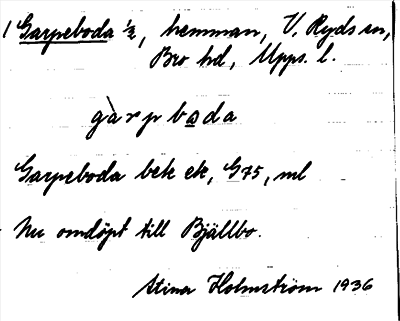 1 Garpeboda ½, hemman, V. Ryds sn,
Bro hd, Upps. l.
gàrpboda
Garpeboda bek ek, G75, ml
Nu omdöpt till Bjällbo.
Stina Holmström 1936